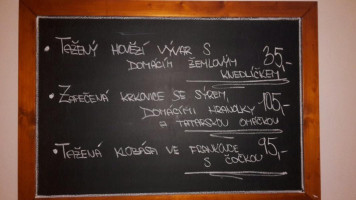 • TAŽENÝ HOVĚZÍ VÝVAR S 35,-
DOMÁCÍM ŽEMLOVÝM
KNEDLÍČKEM
• ZAPEČENÁ KRKOVICE SE SÝREM, 105,-
DOMÁCÍMI HRANOLKY
A TATARSKOU OMÁČKOU
• TAŽENÁ KLOBÁSA VE 95,-
S ČOČKOU